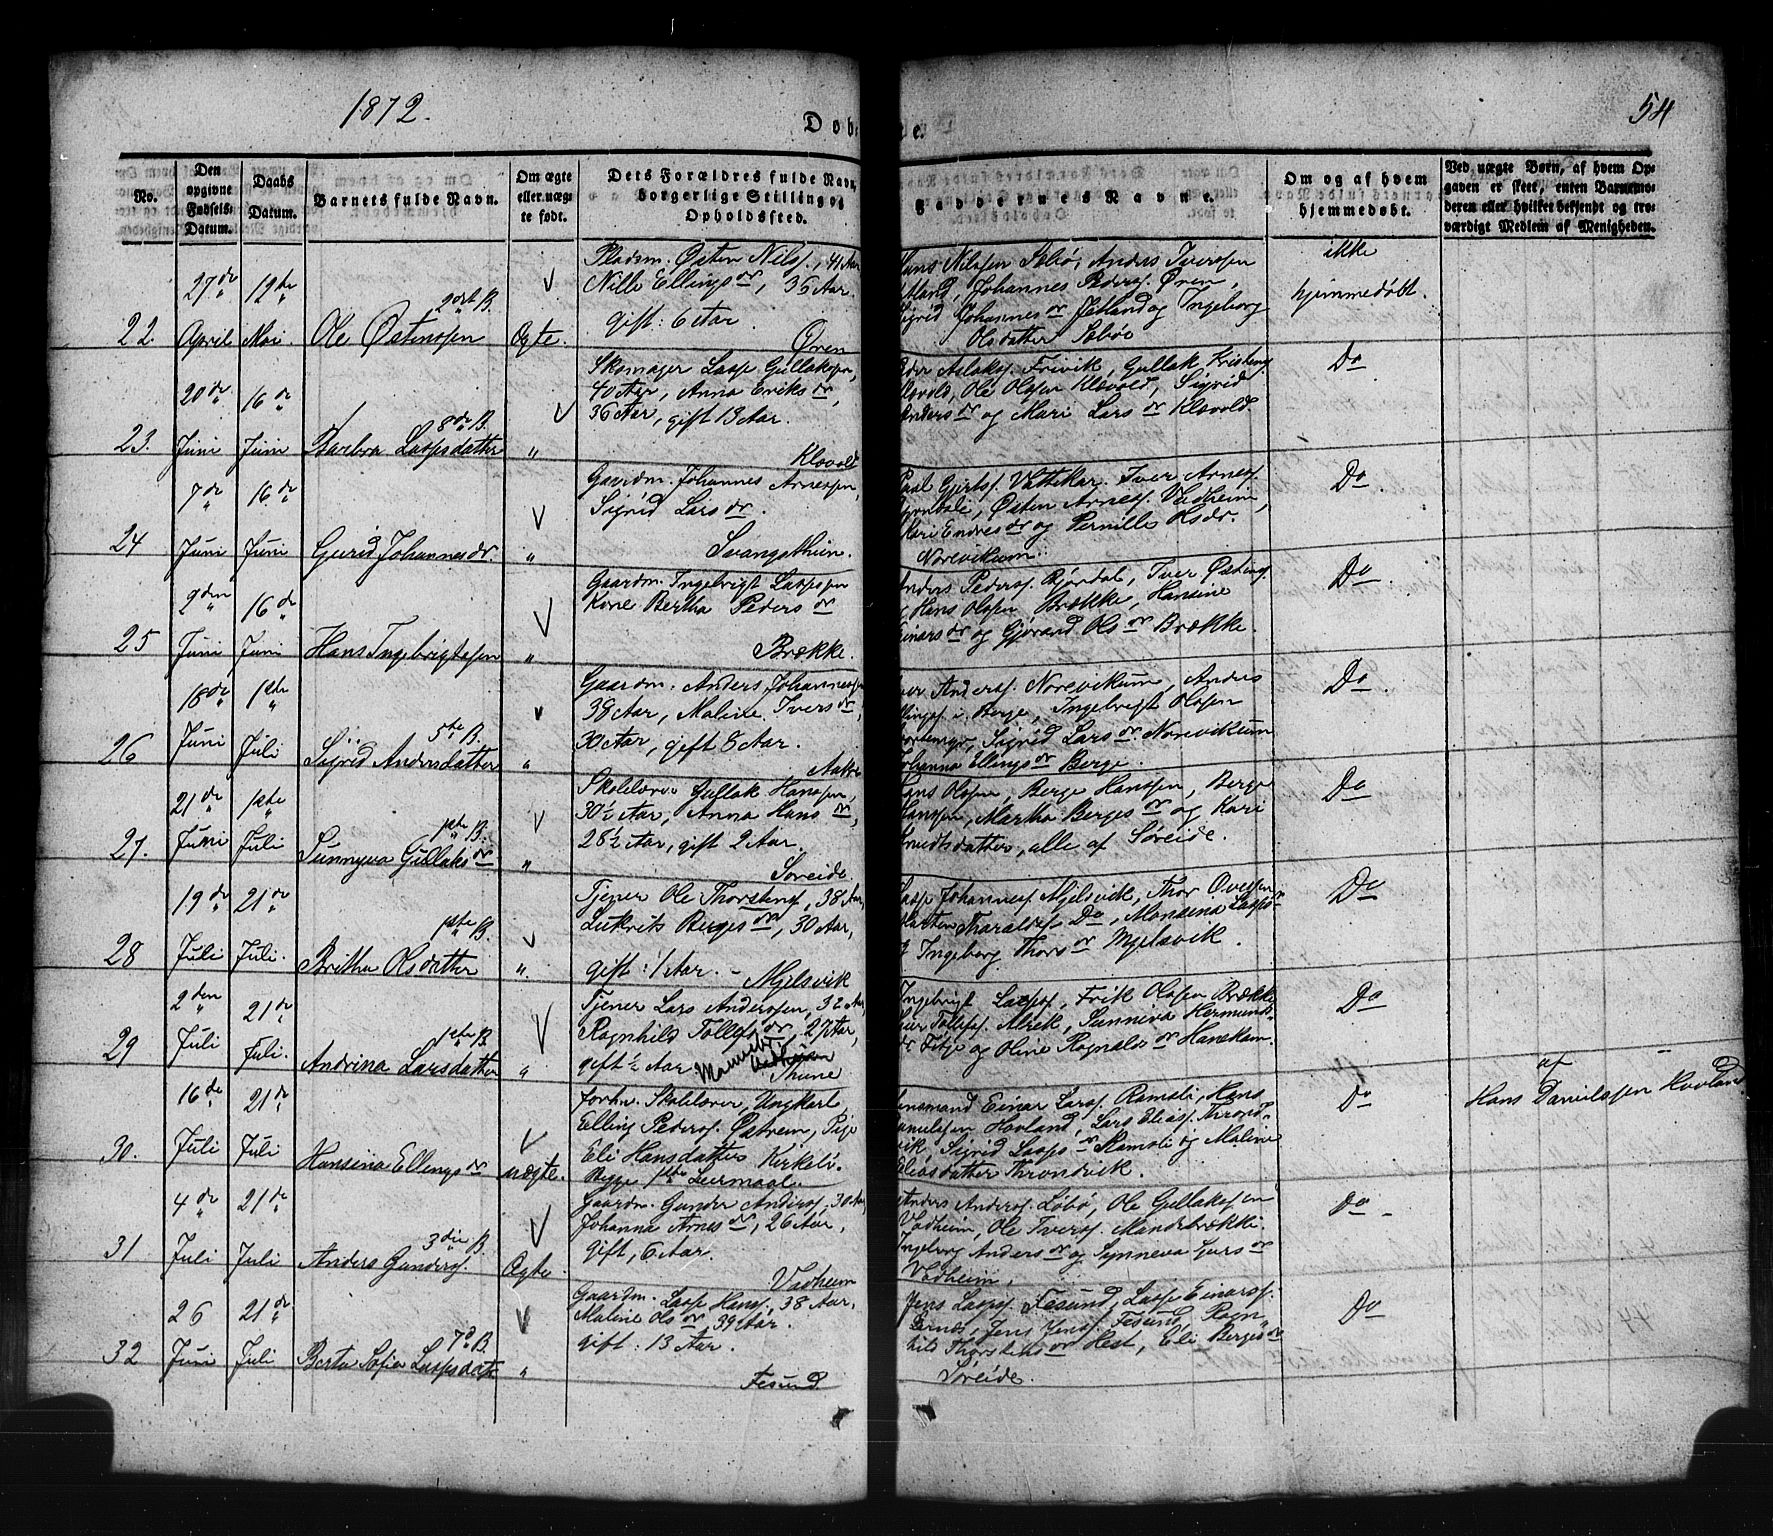 1872.
Døbte.
54
No.
Den opgivne Fødsels-Datum.
Daabs Datum.
Barnets fulde Navn.
Om ægte eller uægte født.
Dets Forældres fulde Navn, borgerlige Stilling og Opholdssted.
Faddernes Navne.
Om og af hvem hjemmedøbt.
Ved uægte Børn, af hvem Opgaven er skeet, enten Barnemoderen eller hvilket bekjendt og troværdigt Medlem af Menigheden.
22.
27de April
12te Mai
2det B.
Ole Østensen
Ægte.
Pladsm. Østen Nilss., 41 Aar
Nille Ellingsdr, 36 Aar.
gift: 6 Aar.
Øren
Hans Nilssen Sæbø, Anders Iversen
Johannes Peders. Øren,
Sigrid Johannesdr Jetland og Ingeborg
Olsdatter Sæbøe
ikke
hjemmedøbt.
23.
20de Juni
16de Juni
8de B.
Barbra Lassesdatter
"
Skomager Lasse Gullaksen,
40 Aar, Anna Eriksdr,
36 Aar, gift 13 Aar.
Klævold
Peder Aslaks. Frivik, Gullak Kristens.
Klævold, Ole Olsen Klævold, Sigrid
Andersdr og Mari Larsdr Klævold.
Do
24
7de Juni
16de Juni
Gurid Johannesdr.
"
Gaardm. Johannes Arnesen,
Sigrid Larsdr.
Svangsthun.
Paal Gjerts. Vattekar. Iver Arness.
Østen Arness. Vadheim,
Mari Endresdr og Pernille Olsdr.
Norevikum.
Do
25
9den Juni
16de Juni
Hans Ingebrigtsen
"
Gaardm. Ingebrigt Lassesen
Kone Bertha Pedersdr
Brække.
Anders Peders. Bjordal, Iver Østens.
og Hans Olsen Brække, Hansine
Einarsdr og Gjørand Olsdr Brække.
Do
26
18de Juni
1ste Juli
5te B.
Sigrid Andersdatter
"
Gaardm. Anders Johannessen
38 Aar, Maline Iversdr,
30 Aar, gift 8 Aar.
Iver Anders. Norevikum, Anders
Ellings. i Berge, Ingebrigt Olsen
Sigrid Larsdr Norevikum
Johanna Ellingsdr Berge.
Do
27.
21de Juni
1ste Juli
1ste B.
Sunnyva Gullaksdr
"
Skolelærer Gullak Hansen,
30½ Aar, Anna Hansdr,
28½ Aar, gift 2 Aar.
Søreide.
Hans Olsen, Berge Hansen, Berge
Hansen, Martha Bergesdr og Kari
Knudsdatter, alle af Søreide.
Do
28
19de Juli
21de Juli.
1ste B.
Britha Olsdatter
"
Tjener Ole Thorstens, 38 Aar
Lukrits Bergesdr, 30 Aar,
gift: 1 Aar. -
Mjelsvik
Lasse Johanness. Mjelsvik, Thor Ovesen
Marten Haralds. Do, Monsina Lassesdr
og Ingeborg Thorsdr Mjelsvik.
Do
29
2den Juli
21de Juli.
1ste B.
Andrina Larsdatter
"
Tjener Lars Andersen, 32 Aar
Ragnhild Tollefsdr, 27 Aar,
gift ½ Aar
Thune
Ingebrigt Lasses., Erik Olsen Brække
Tollefs. Alrek, Sunniva Hermundsdr
Fitje og Oline Ragnaldsdr Hanekam.
Do
30.
16de Juli
21de Juli
Hansina Ellingsdr
uægte.
forhv. Skolelærer, Ungkarl
Elling Peders. Østrem, Pige
Eli Hansdatter Kirkebø.
Begge 1ste Leiermaal.
Lensmand Einar Lars. Ramsli, Hans
Danielsen Hovland, Lars Elias. Thrond-
vik, Sigrid Lassesdr Ramsli og Maline
Eliasdatter Throndvik.
Do
af
Hans Danielsen Hovland
31
4de Juli
21de Juli
3die B.
Anders Gunders.
Ægte.
Gaardm. Gunder Anders., 30 Aar
Johanna Arnesdr, 26 Aar,
gift, 6 Aar.
Vadheim
Anders Anders. Løbø, Ole Gullaksen
Vadheim, Ole Ivers. Mandebrække.
Ingeborg Andersdr og Synneva Larsdr
Vadheim,
Do
32
26 Juni
21de Juli
7de B.
Berta Sofie Lassesdatr
"
Gaardm. Lasse Hans., 38 Aar,
Maline Olsdr, 39 Aar.
gift: 13 Aar.
Fesund
Jens Lasses. Fesund, Lasse Einars.
Jens Jens. Fesund, Ragn-
hild Thorstensdr Hest, Eli Bergesdr
Søreide.
Do